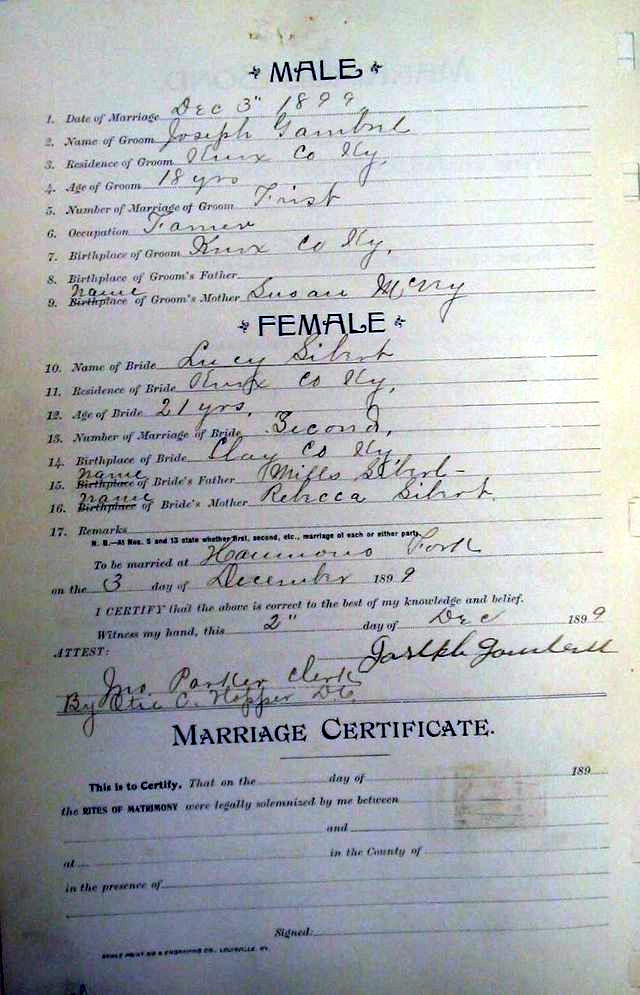 MALE
1. Date of Marriage Dec 3" 1899
2. Name of Groom Joseph Gambrel
3. Residence of Groom Knox Co Ky,
4. Age of Groom 18 yrs
5. Number of Marriage of Groom First
6. Occupation Farmer
7. Birthplace of Groom Knox Co Ky,
8. Birthplace of Groom's Father
name
9. Birthplace of Groom's Mother Susan
FEMALE
10. Name of Bride Lucy Sibrot
11. Residence of Bride Knox Co Ky,
12. Age of Bride 21 yrs,
13. Number of Marriage of Bride Second,
14. Birthplace of Bride Clay Co Ky
name
15. Birthplace of Bride's Father Mills
name
16. Birthplace of Bride's Mother Rebecca Sibrot
17. Remarks
N. B.—At Nos. 5 and 13 state whether first, second, etc., marriage of each or either party.
To be married at Hammons Fork
on the 3 day of December 1899
I CERTIFY that the above is correct to the best of my knowledge and belief.
Witness my hand, this 2" day of Dec 1899
ATTEST: Joseph
Jno. Parker Clerk
By C. Hopper D.C.
MARRIAGE CERTIFICATE.
This is to Certify, That on the day of 189
the RITES OF MATRIMONY were legally solemnized by me between
and
at in the County of
in the presence of
Signed:
PRINTING & ENGRAVING CO., LOUISVILLE, KY.